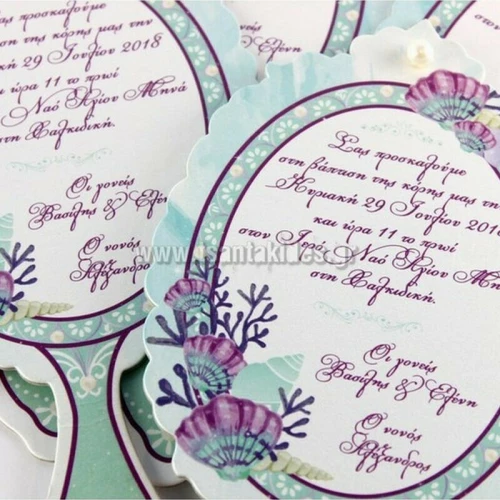 Σας προσκαλούμε
στη βάπτιση της κόρης μας την
Κυριακή 29 Ιουλίου 2018
και ώρα 11 το πρωί
στον Ιερό Ναό Αγίου Μηνά
στη Χαλκιδική.
Οι γονείς
Βασίλης & Ελένη
Ο νονός
Αλέξανδρος
προσκαλούμε
βάπτιση της κόρης μας την
29 Ιουλίου 2018
και ώρα 11 το πρωί
Ναό Αγίου Μηνά
στη Χαλκιδική.
Οι γονείς
Βασίλης & Ελένη
Ο νονός
Αλέξανδρος